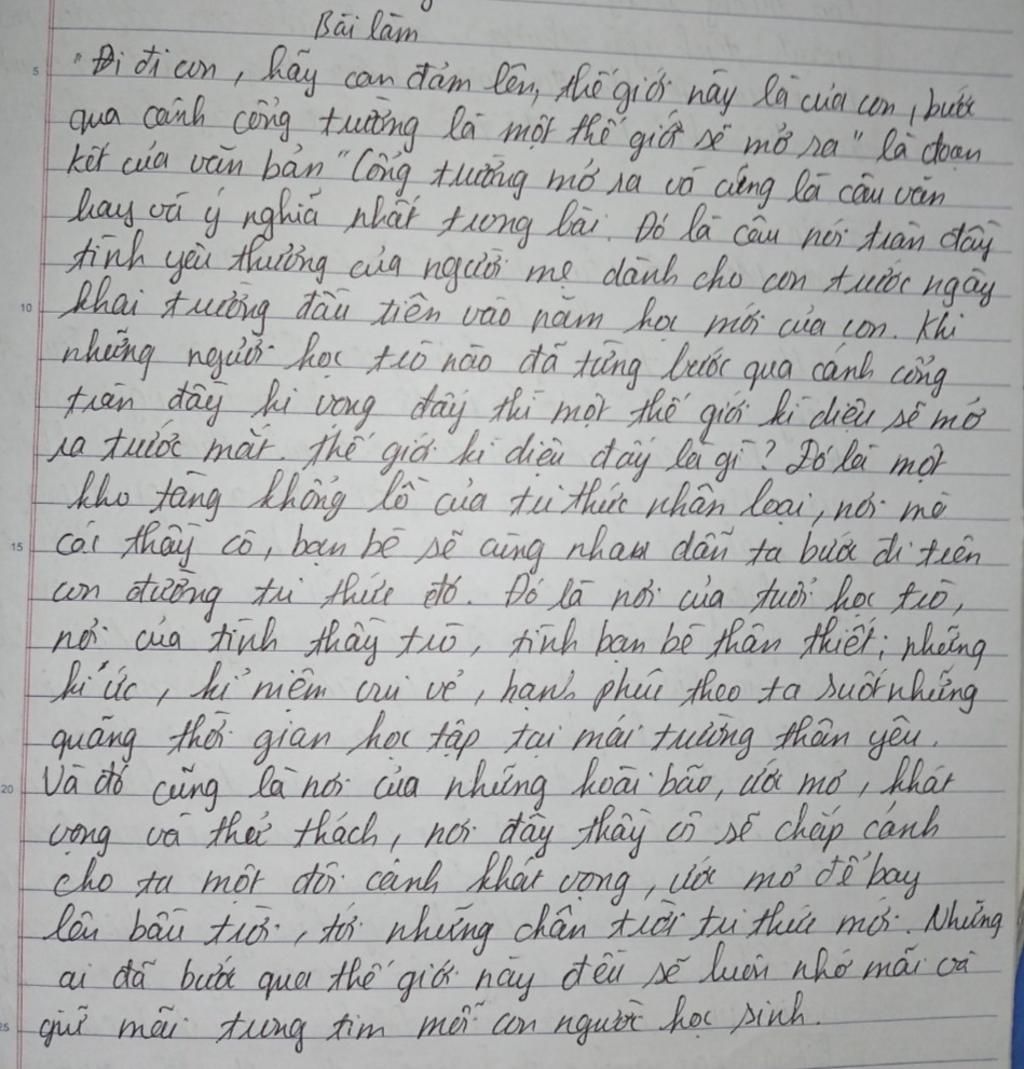 Bài làm
"Đi đi con, hãy can đảm lên, thế giới này là của con, bước
qua cánh cổng trường là một thế giới sẽ mở ra" là đoạn
kết của văn bản "Cổng trường mở ra vô cùng là câu văn
hay và ý nghĩa nhất trong bài. Đó là câu nói tràn đầy
tình yêu thương của người mẹ dành cho con trước ngày
khai trường đầu tiên vào năm học mới của con. Khi
những người học trò nào đã từng bước qua cánh cổng
tràn đầy hi vọng đấy thì một thế giới kì diệu sẽ mở
ra trước mắt. Thế giới kì diệu đấy là gì? Đó là một
kho tàng khổng lồ của tri thức nhân loại, nơi mà
các thầy cô, bạn bè sẽ cùng nhau dẫn ta bước đi trên
con đường tri thức đó. Đó là nơi của tuổi học trò,
nơi của tình thầy trò, tình bạn bè thân thiết; những
kí ức, kỉ niệm vui vẻ, hạnh phúc theo ta suốt những
quãng thời gian học tập tại mái trường thân yêu.
Và đó cũng là nơi của những hoài bão, ước mơ, khát
vọng và thử thách, nơi đây thầy cô sẽ chắp cánh
cho ta một đôi cánh khát vọng, ước mơ để bay
lên bầu trời, tới những chân trời tri thức mới. Những
ai đã bước qua thế giới này đều sẽ luôn nhớ mãi và
giữ mãi trong tim mỗi con người học sinh.